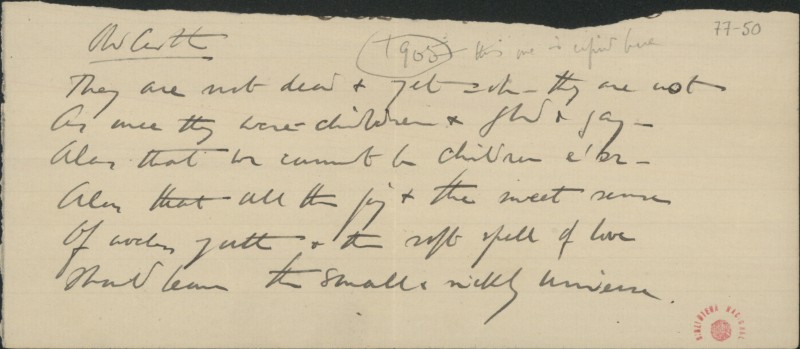 77-50
Old Castle
1905 this one is copied here
They are not dead & yet - oh - they are not
As once they were - children & glad & gay -
Alas that we cannot be children e'er -
Alas that all the joy & the sweet sense
Of youth & the soft spell of love
Should leave the small & sickly universe.